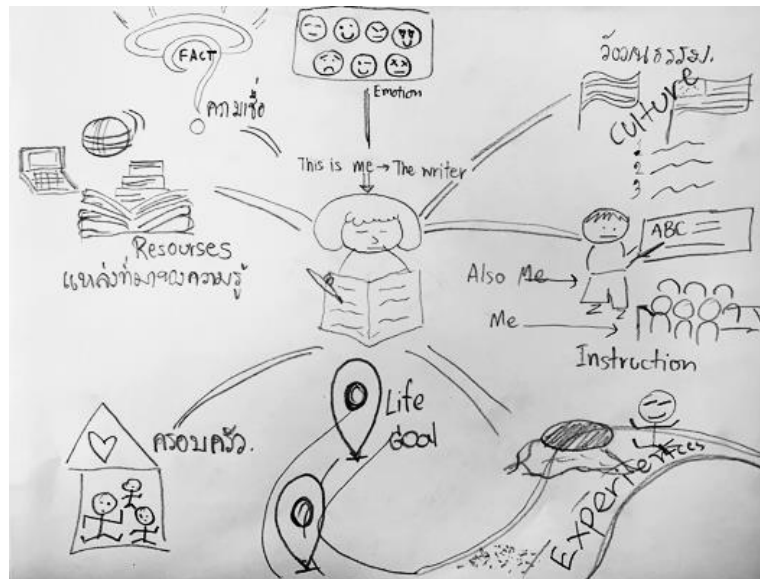 FACT
ความเชื่อ
Emotion
วัฒนธรรม.
Culture
1
2
3
This is me → The writer
ABC
Resourses
แหล่งที่มาของความรู้
Also Me
Me
Instruction
ครอบครัว.
Life
GOAL
Experiences